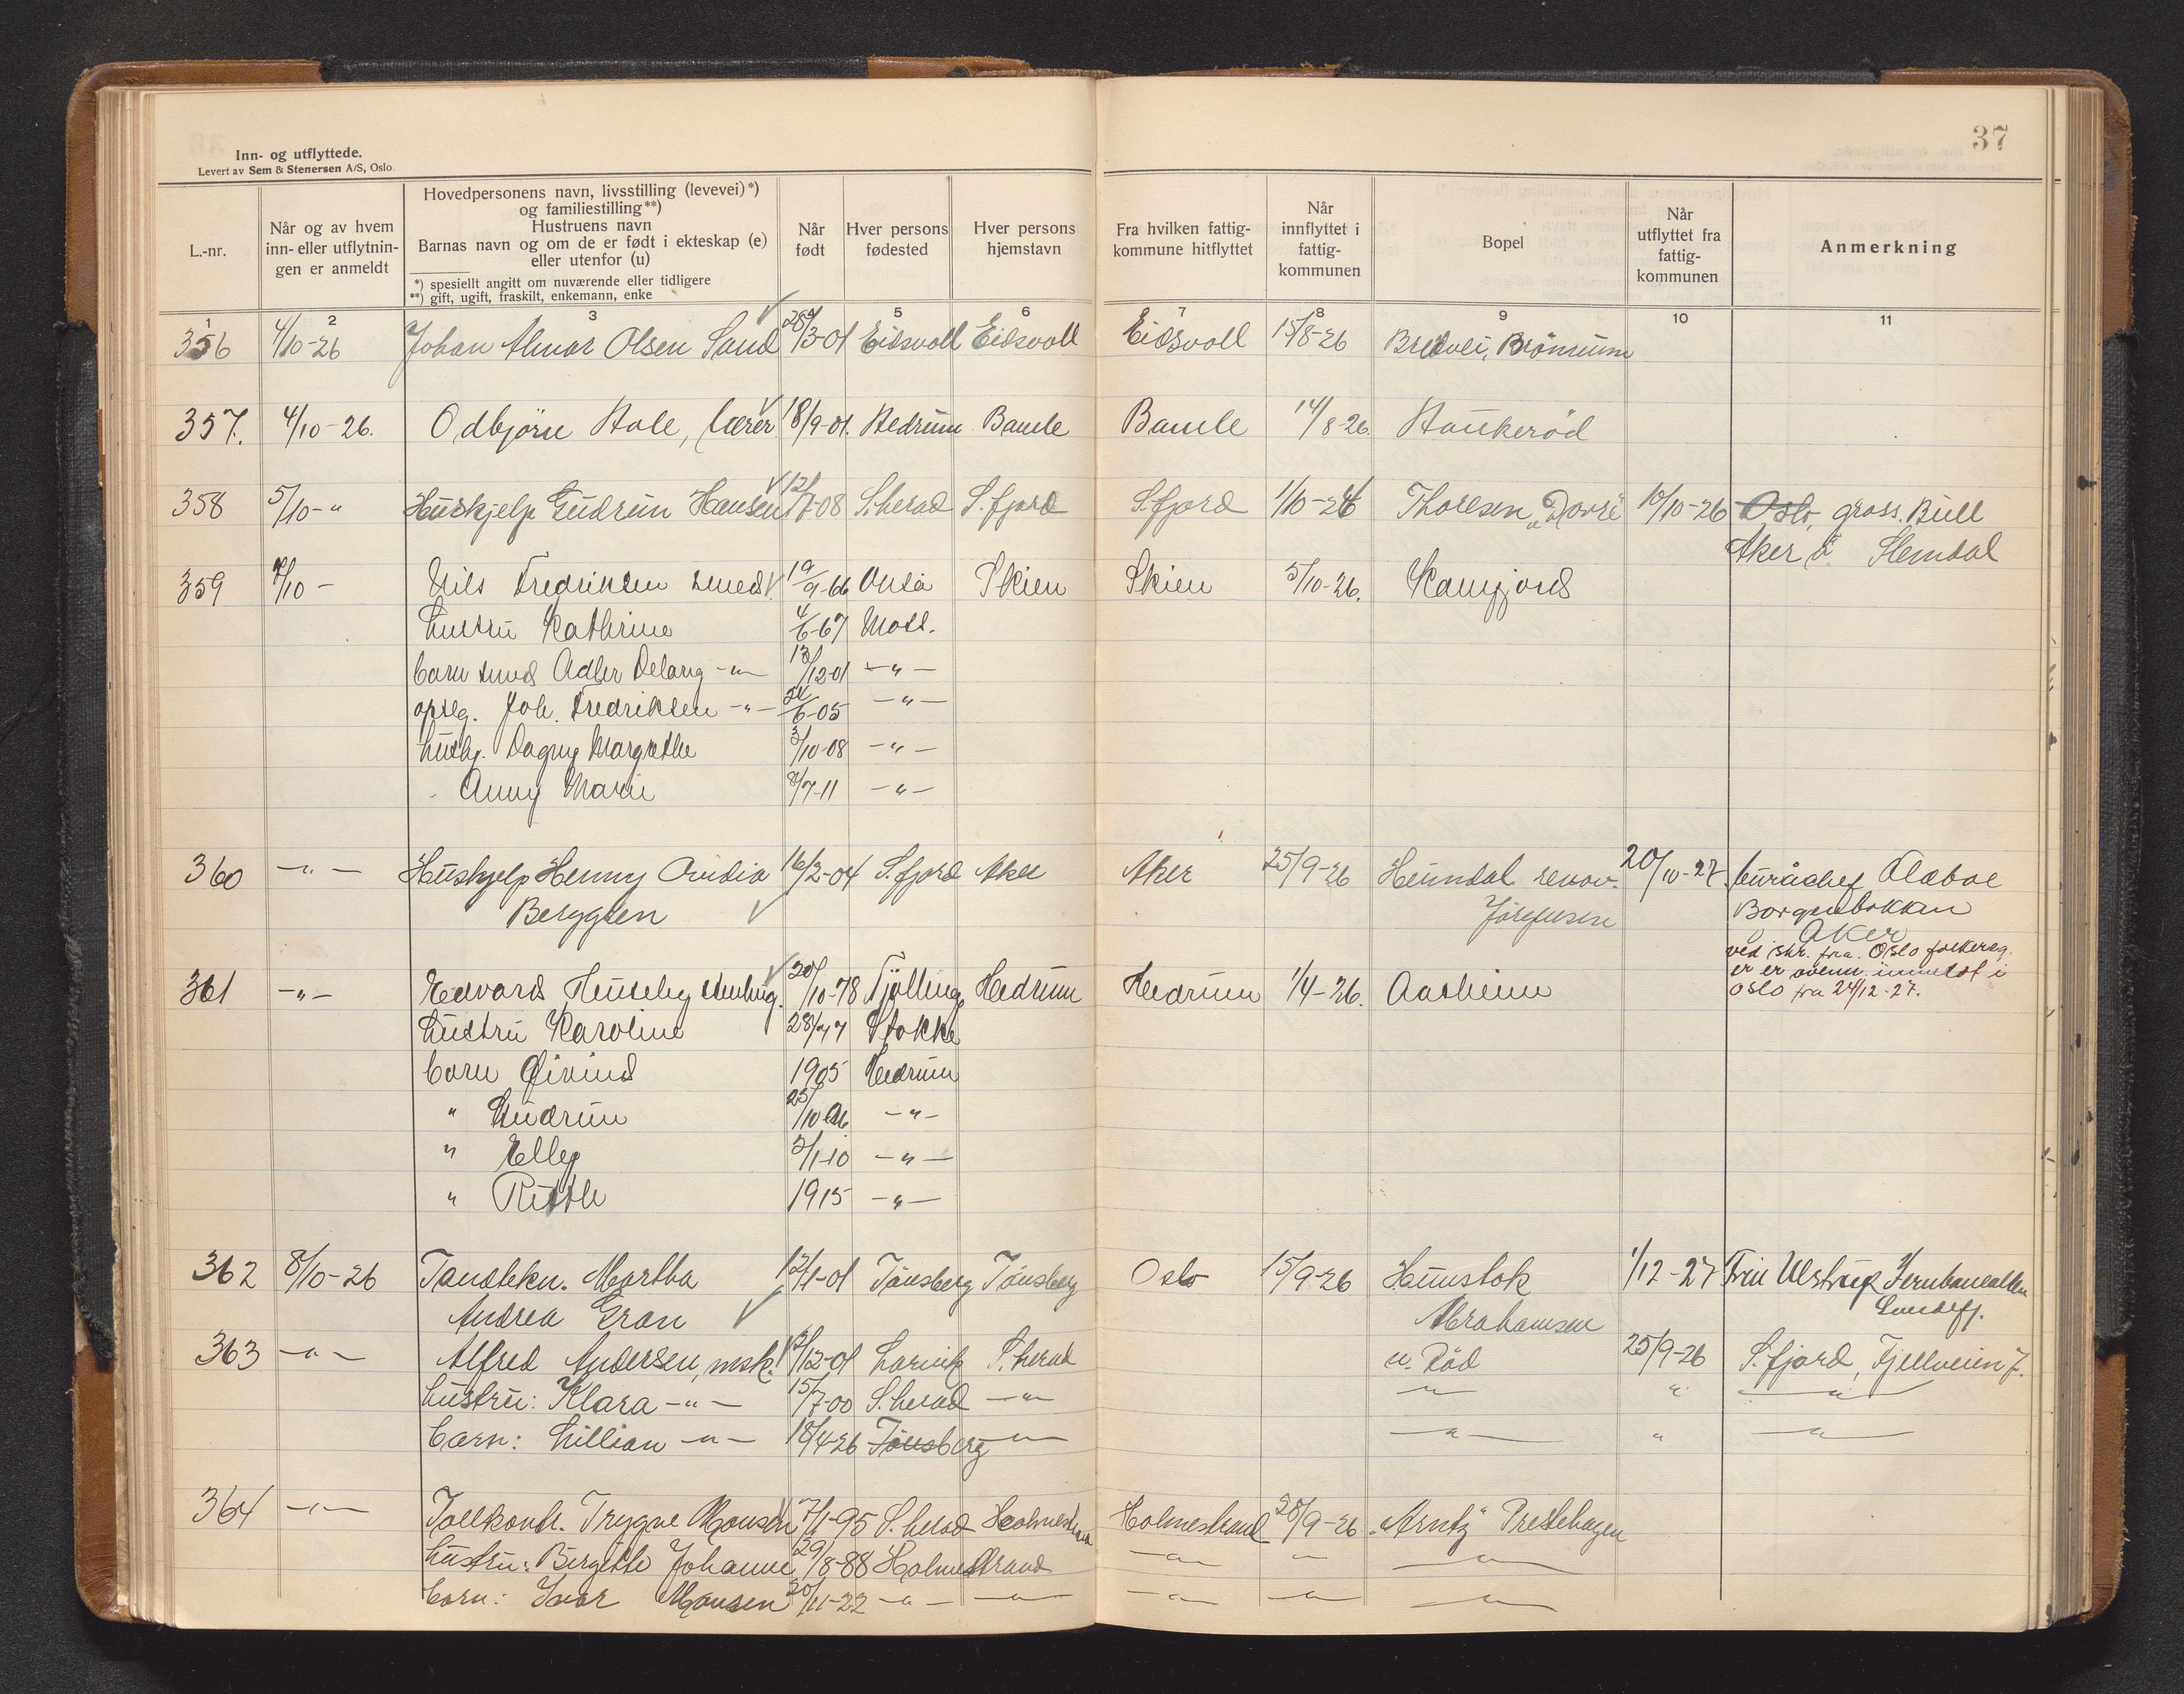 37
Inn- og utflyttede.
Levert av Sem & Stenersen A/S, Oslo
L.-nr.
Når og av hvem inn- eller utflytnin-gen er anmeldt
Hovedpersonens navn, livsstilling (levevei)*)
og familiestilling**)
Hustruens navn
Barnas navn og om de er født i ekteskap (e)
eller utenfor (u)
*) spesielt angitt om nuværende eller tidligere
**) gift, ugift, fraskilt, enkemann, enke
Når født
Hver persons fødested
Hver persons hjemstavn
Fra hvilken fattig-kommune hitflyttet
Når innflyttet i fattig-kommunen
Bopel
Når utflyttet fra fattig-kommunen
Anmerkning
1 2 3 5 6 7 8 9 10 11
356 4/10-26 Johan Almar Olsen Sand 28/3-01 Eidsvoll Eidsvoll Eidsvoll 15/8-26 Bredvei, Brönnum
357. 4/10-26. Odbjörn Hole, lærer 18/9-01. Hedrum Bamle Bamle 14/8-26. Haukeröd
358 5/10-" Huskjelp Gudrun Hansen 12/7-08 S.herad S.fjord S.fjord 1/10-26 Thoresen "Dovre" 10/10-26 Oslo, gross. Bull
Aker Slemdal
359 7/10- Nils Fredriksen smed 19/9-66 Onsö Skien Skien 5/10-26. Kamfjord
hustru Kathrine 4/6-67 Moss.
barn smed Adler Delang -"- 13/12-01 -"-
opseg. Joh. Fredriksen -"- 24/6-05 -"-
hushj. Dagny Margrethe 3/10-08 -"-
Anny Marie 8/7-11 -"-
360 -"- Huskjelp Henny Ovidia 16/2-04 S.fjord Aker Aker 25/9-26 Heimdal renov. 20/10-27. buråchef Olaboe
Berggren Jörgensen Borgenbakken
Aker
ved skr. fra Oslo folkereg.
er er ovenn. innmeldt i
Oslo fra 24/12-27.
361 -"- Edvard Huseby 20/10-78 Tjölling Hedrum Hedrum 1/4-26. Aasheim
hustru Karoline 28/4 77 Stokke
barn Öivind 1905 Hedrum
" Gudrun 25/10 06 -"-
" Elly 3/1-10 -"-
" Ruth 1915 -"-
362 8/10-26 Tandtekn. Martha 12/1-01 Tönsberg Tönsberg Oslo 15/9-26 Haunstok 1/12-27 Fru Ulstrup Jernbanealleen
Andrea Gran Abrahamsen Sandefj.
363 -"- Alfred Andersen, msk. 2/12-01 Larvik S.herad n. Röd 25/9-26 S.fjord, Fjellveien 7.
hustru: Klara -"- 15/7-00 S.herad -"- -"- " -"-
barn: Lillian -"- 18/4-26 Tönsberg -"- -"- " -"-
364 -"- Tollkontr. Trygve Monsen 7/1-95 S.herad Holmestrand Holmestrand 28/9-26 "Arntz" Prestehagen
hustru: Birgitte Johanne 29/8-88 Holmestrand -"- -"- -"-
barn: Ivar Monsen 20/11-22 -"- -"- -"- -"- -"-